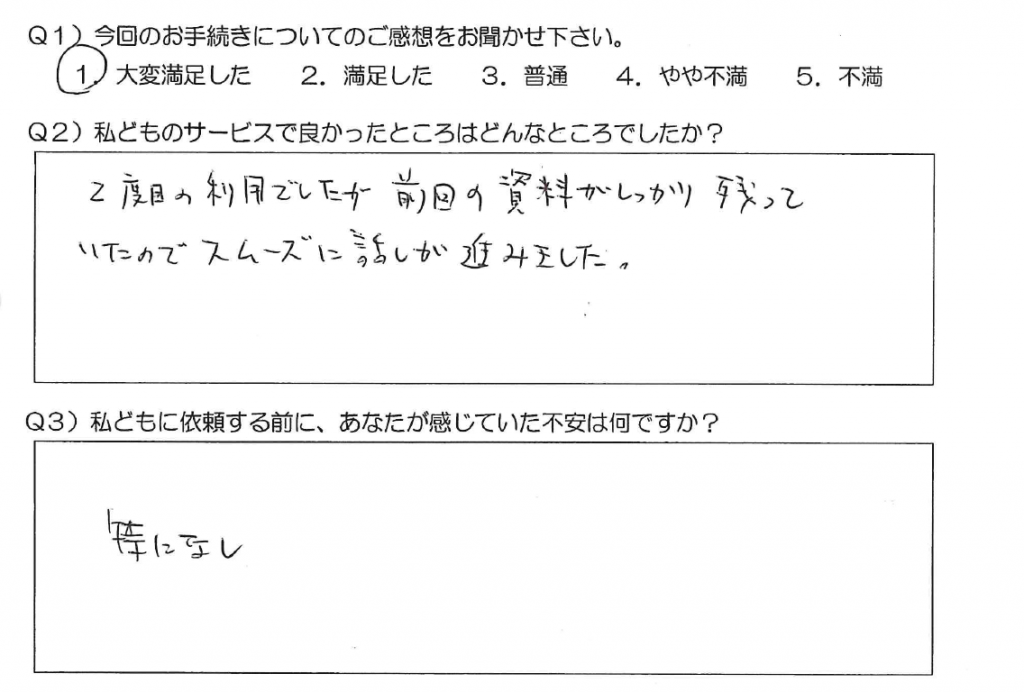 Q1）今回のお手続きについてのご感想をお聞かせ下さい。
1．大変満足した　2．満足した　3．普通　4．やや不満　5．不満
Q2）私どものサービスで良かったところはどんなところでしたか？
2度目の利用でしたが前回の資料がしっかり残って
いたのでスムーズに話しが進みました。
Q3）私どもに依頼する前に、あなたが感じていた不安は何ですか？
特になし